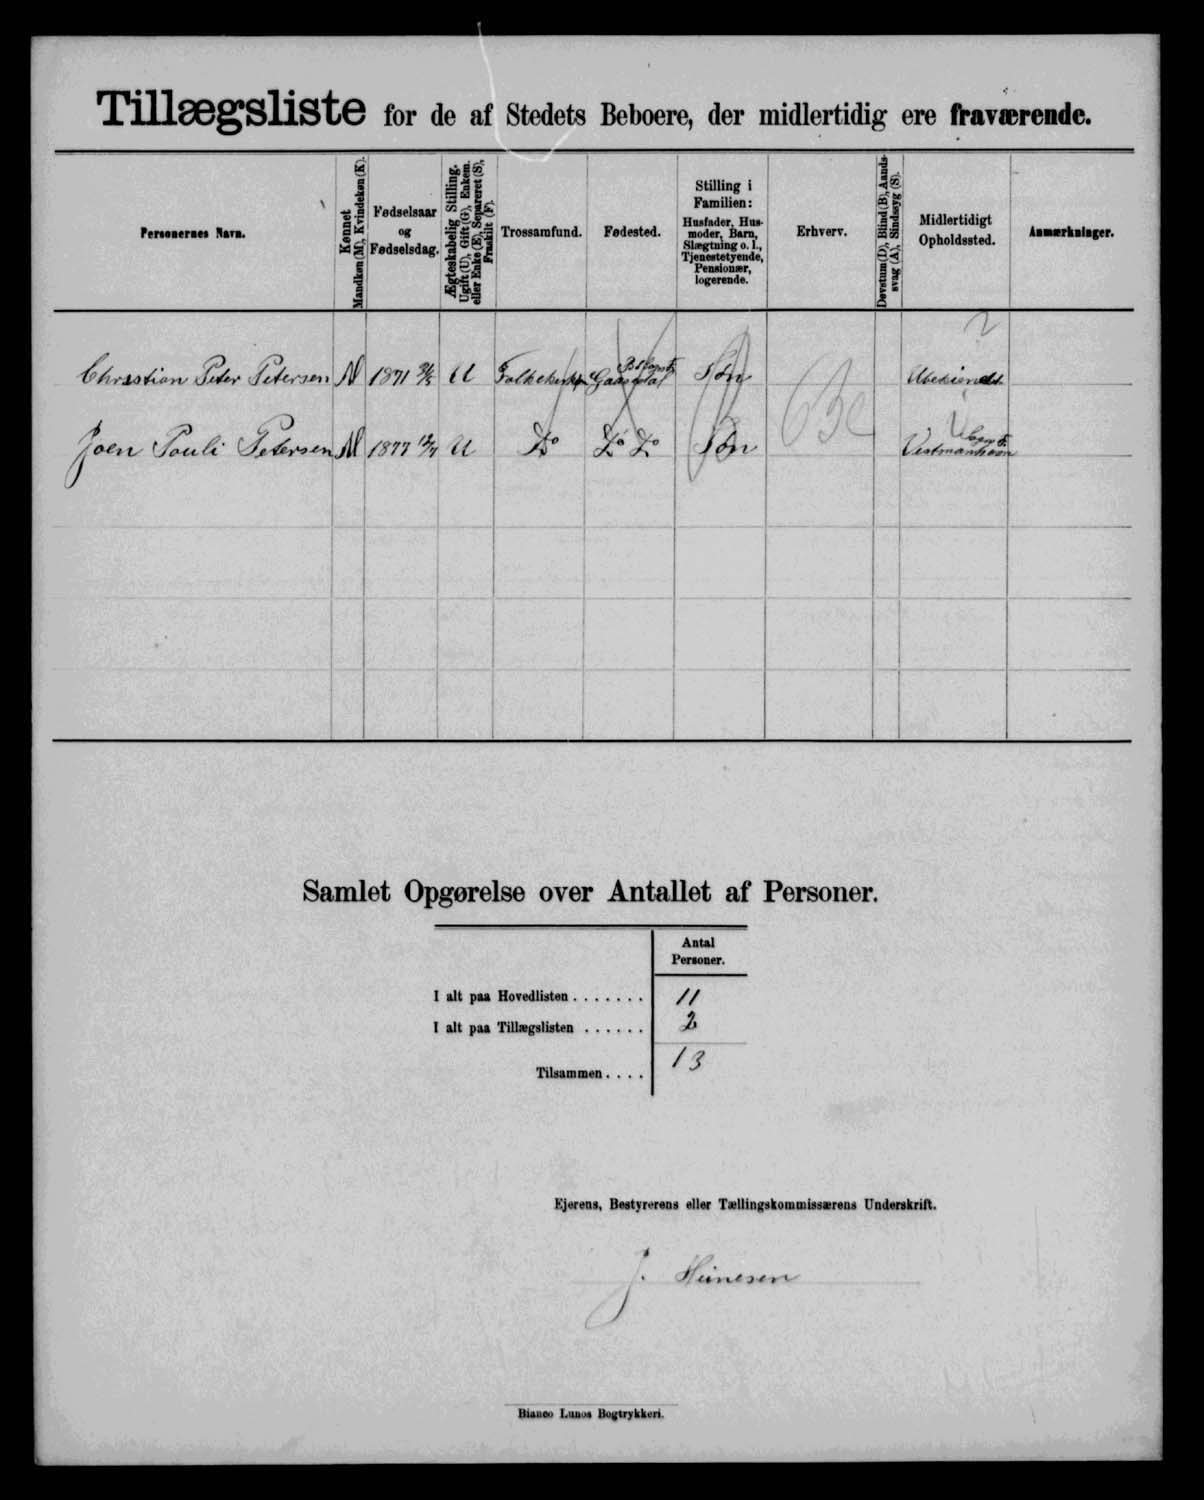 Tillægsliste for de af Stedets Beboere, der midlertidig ere fraværende.
Personernes Navn.
Kønnet
Mandkøn (M), Kvindekøn (K).
Fødselsaar
og
Fødselsdag.
Ægteskabelig Stilling.
Ugift (U), Gift (G), Enkem.
eller Enke (E), Separeret (S),
Fraskilt (F).
Trossamfund.
Fødested.
Stilling i
Familien:
Husfader, Hus-
moder, Barn,
Slægtning o. l.,
Tjenestetyende,
Pensionær,
logerende.
Erhverv.
Døvstum (D), Blind (B), Aands-
svag (A), Sindsyg (S).
Midlertidigt
Opholdssted.
Anmærkninger.
Christian Peter Petersen M 1871 U Folkekirken Gaasedal Søn Ubekiendt
Joen Pouli Petersen M 1877 12/7 U Do Do Do Søn Vestmanhavn
Samlet Opgørelse over Antallet af Personer.
Antal
Personer.
I alt paa Hovedlisten . . . . . . . 11
I alt paa Tillægslisten . . . . . . 2
Tilsammen . . . . 13
Ejerens, Bestyrerens eller Tællingskommissærens Underskrift.
J. Heinesen
Bianco Lunos Bogtrykkeri.